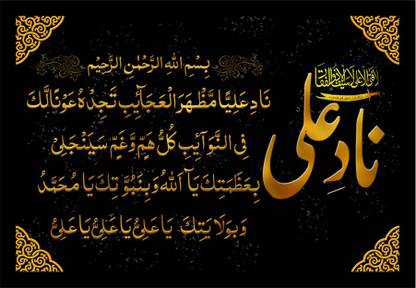 بِسْمِ اللهِ الرَّحْمٰنِ الرَّحِيْمِ
نَادِ عَلِيًّا مَّظْهَرَ الْعَجَآئِبِ تَجِدْهُ عَوْنًا لَّكَ
فِى النَّوَآئِبِ كُلُّ هَمٍّ وَّغَمٍّ سَيَنْجَلِىْ
بِعَظَمَتِكَ يَآ اَللهُ وَبِنُبُوَّتِكَ يَا مُحَمَّدُ
وَبِوَلَايَتِكَ يَا عَلِىُّ يَا عَلِىُّ يَا عَلِىُّ
نادِ علی